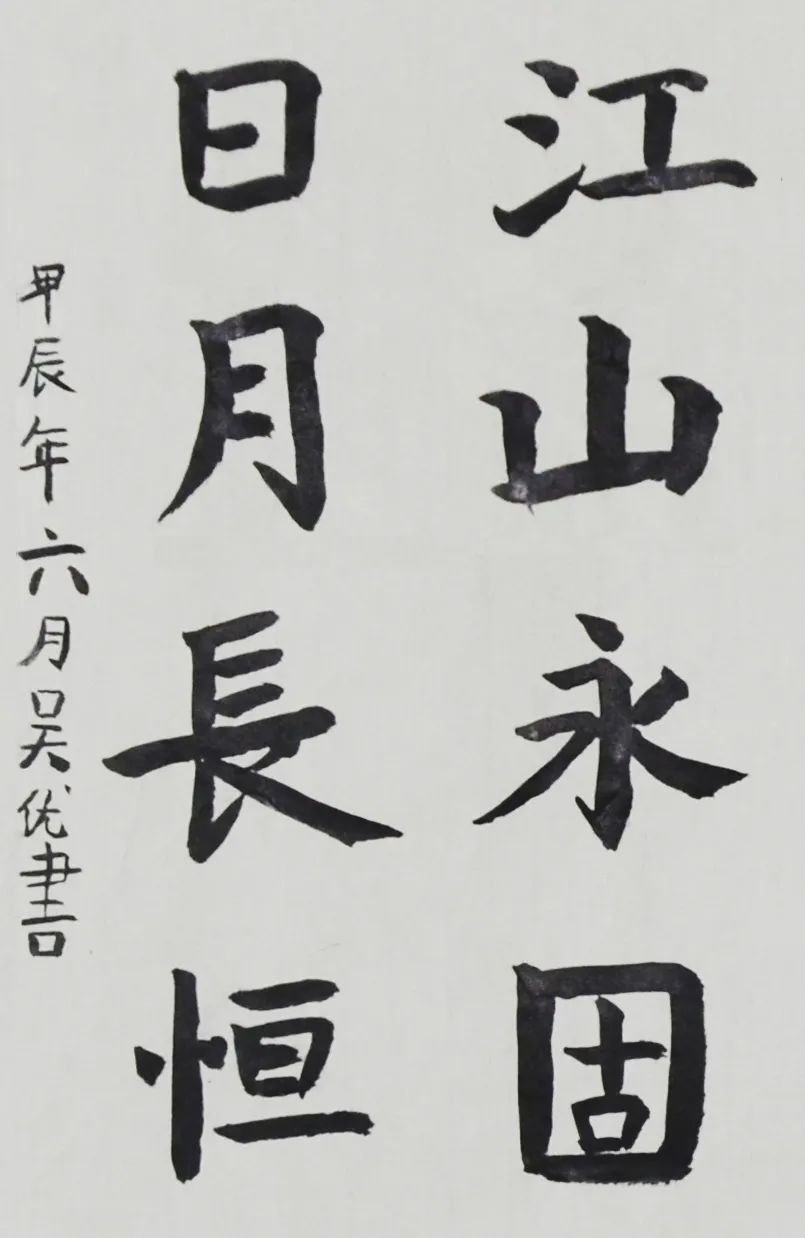 江山永固
日月長恒
甲辰年六月吴优書